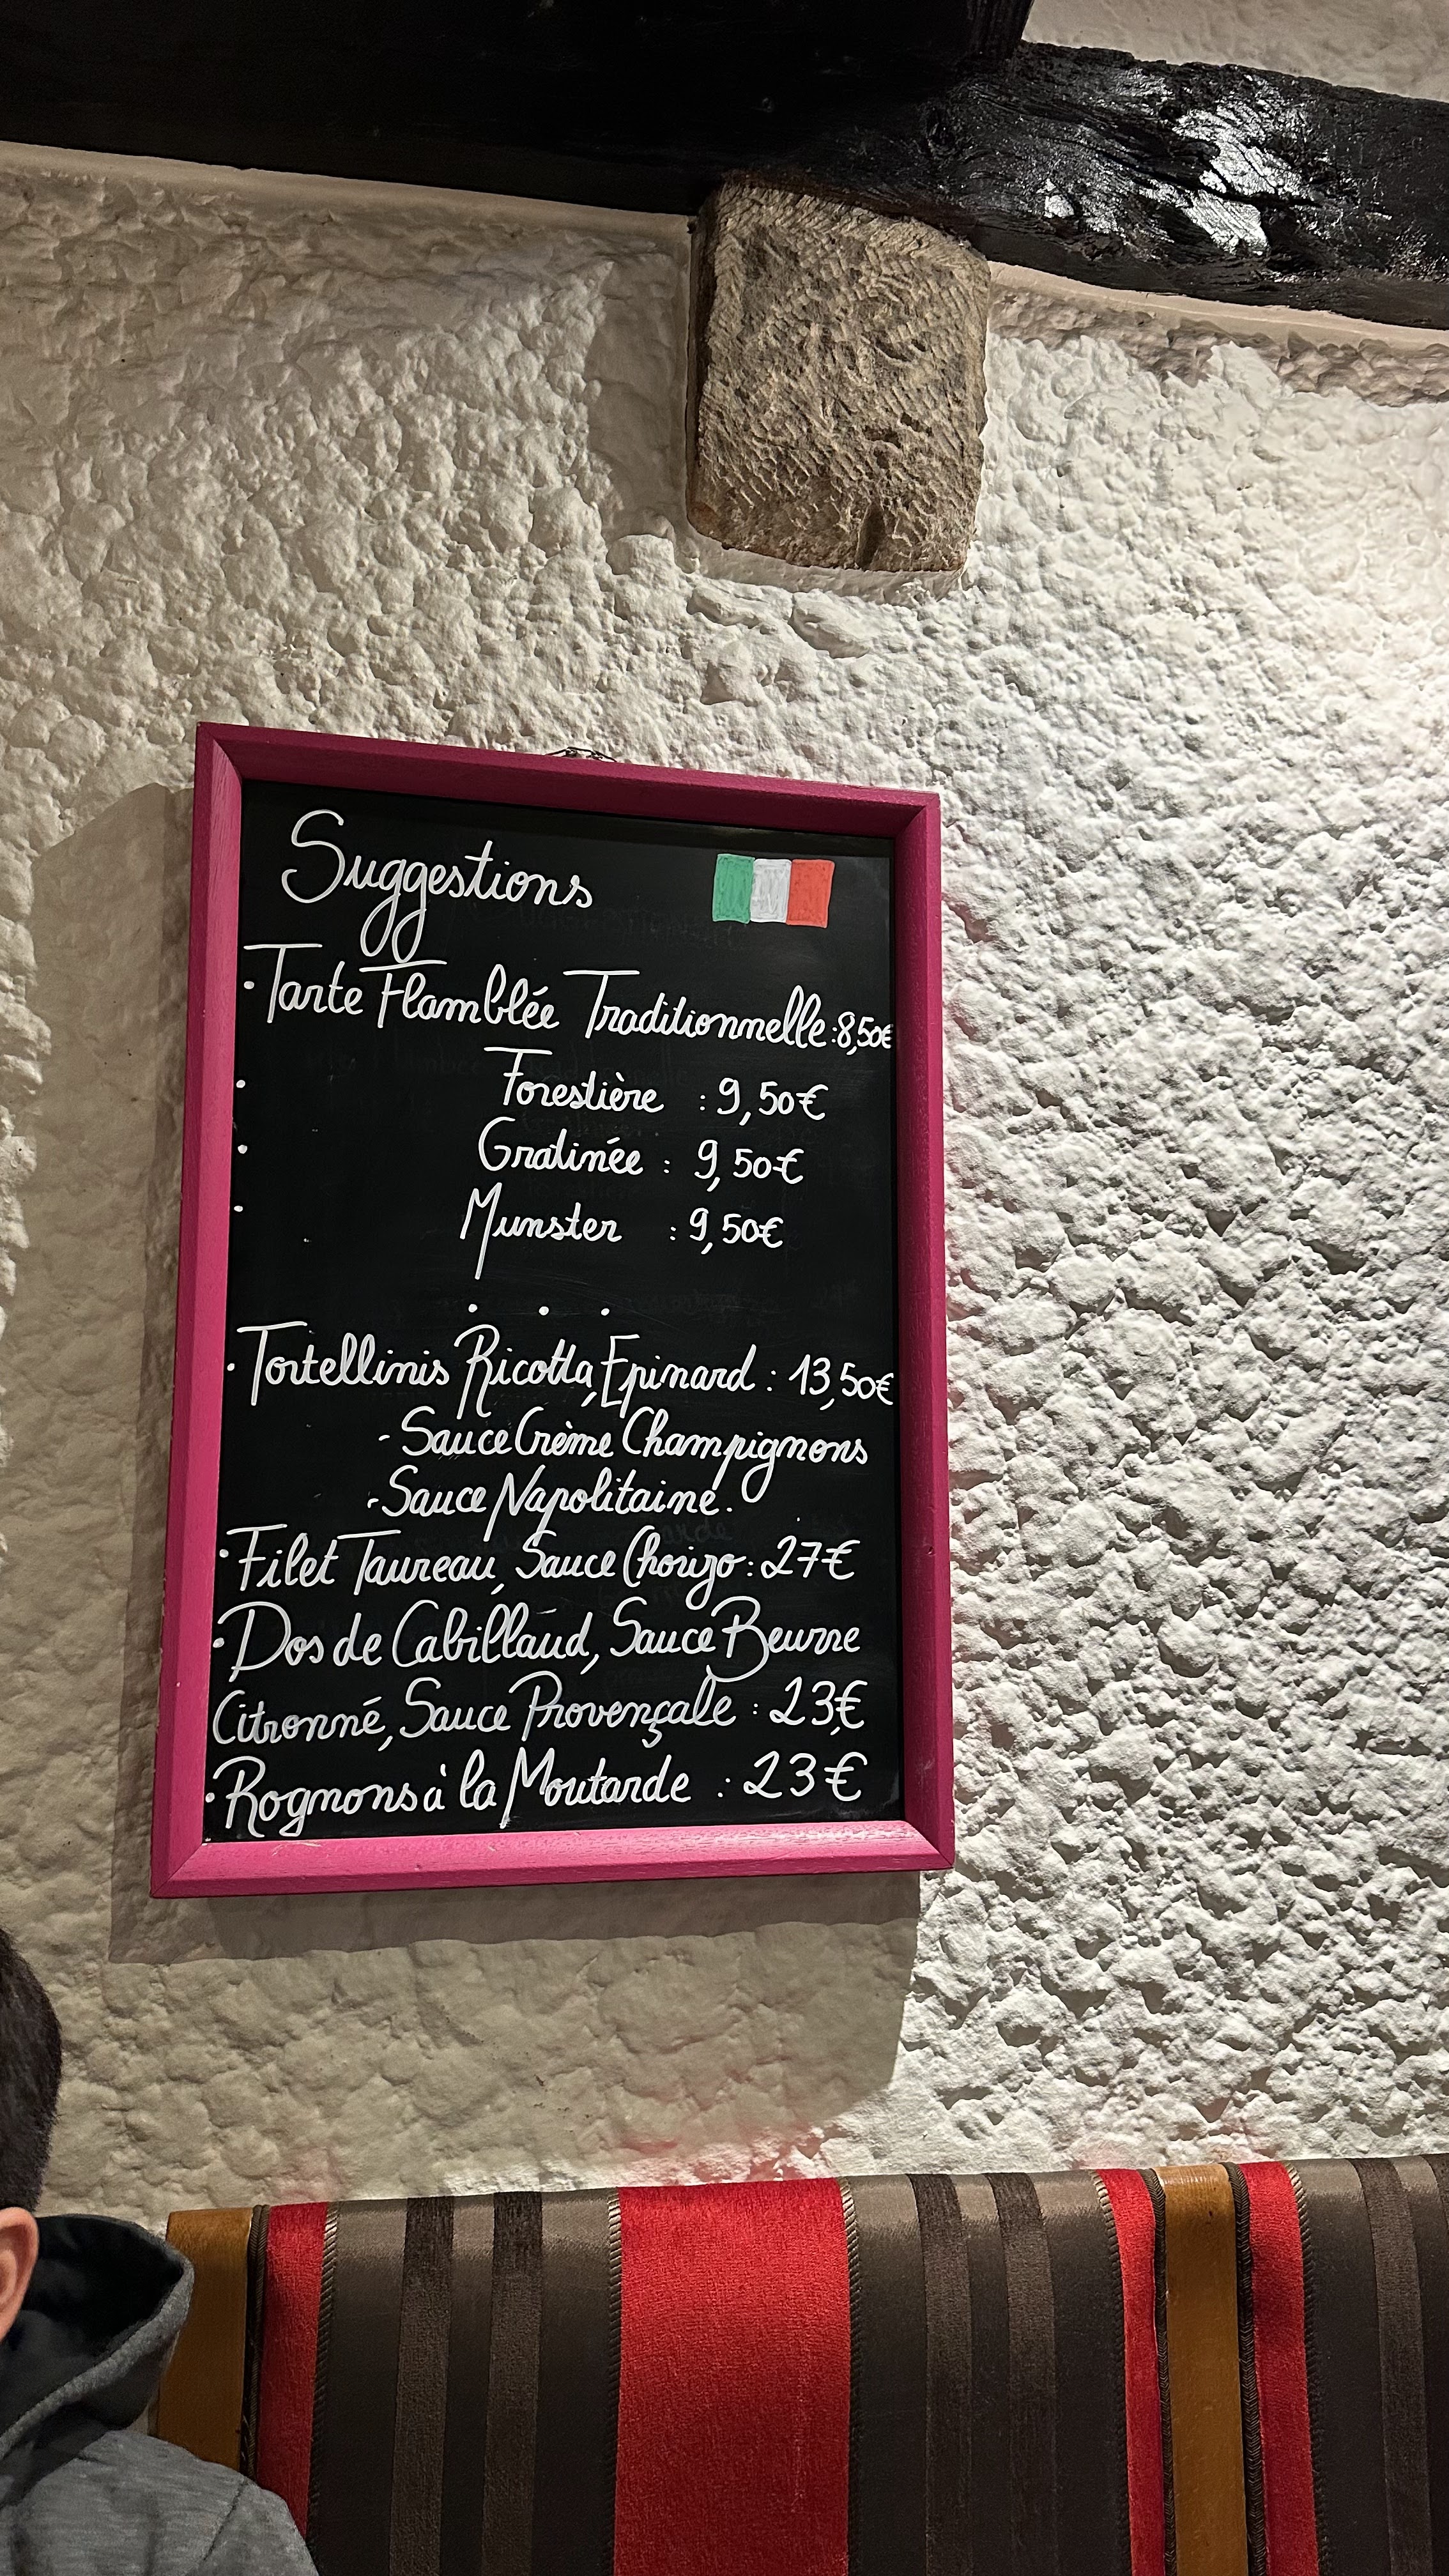 Suggestions
• Tarte Flamblée Traditionnelle : 8,50€
• Forestière : 9,50€
• Gratinée : 9,50€
• Munster : 9,50€
. . .
• Tortellinis Ricotta, Epinard : 13,50€
- Sauce Crème Champignons
- Sauce Napolitaine.
• Filet Taureau, Sauce Chorizo : 27€
• Dos de Cabillaud, Sauce Beurre
Citronné, Sauce Provençale : 23€
• Rognons à la Moutarde : 23€